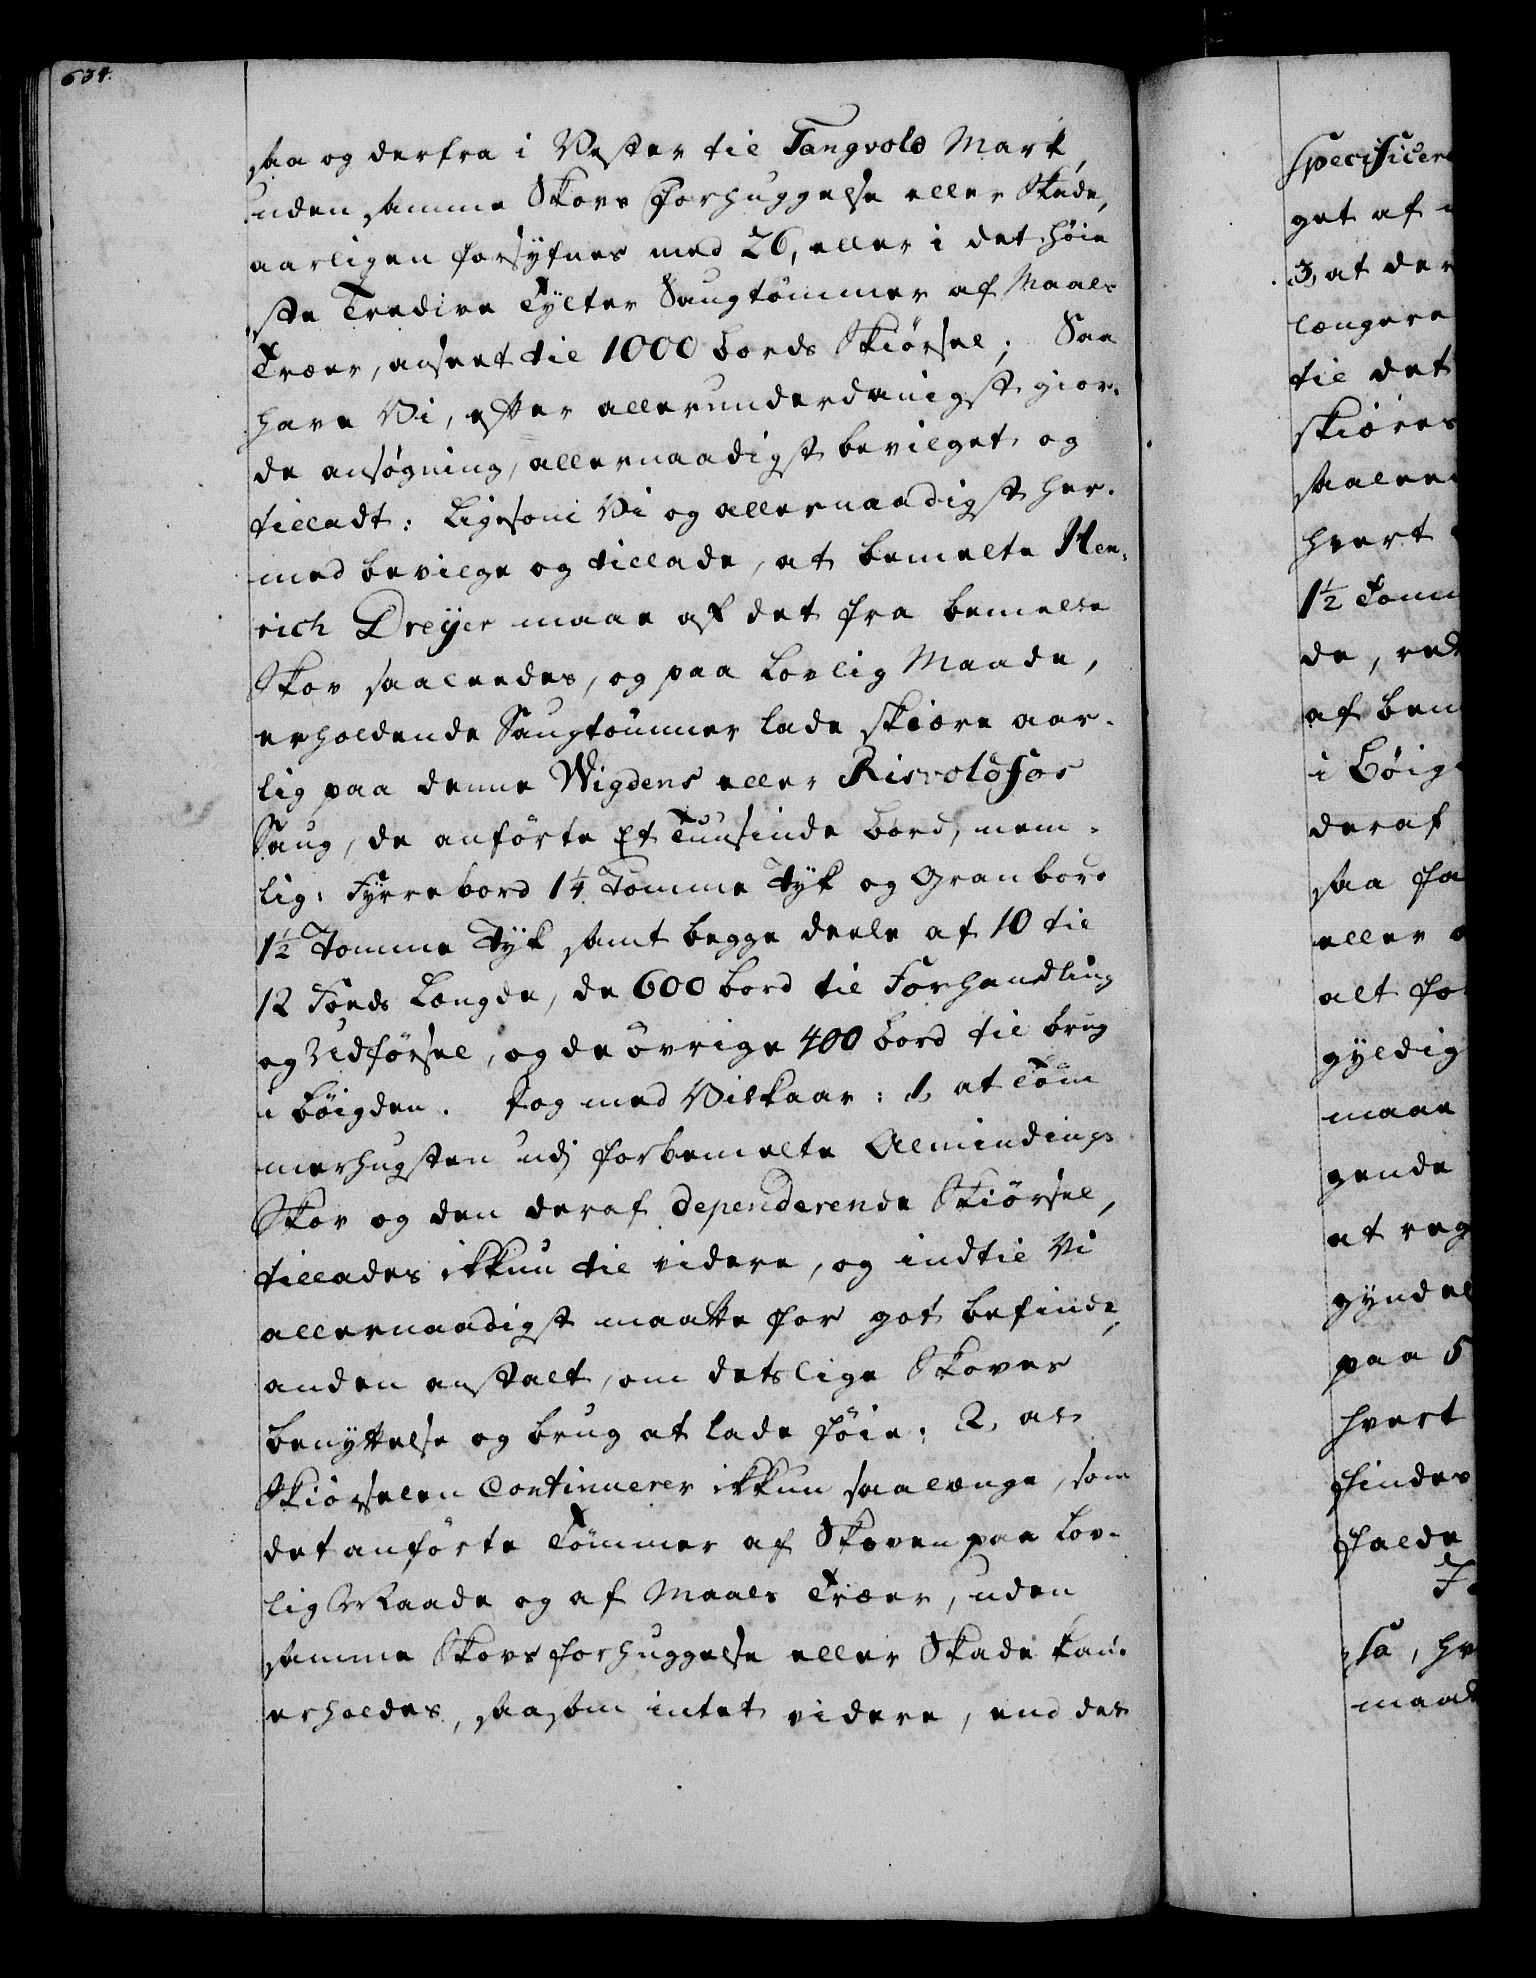 634.
saa og derfra i Vester til Tangvold Mark,
uden samme Skovs Forhuggelse eller Skade,
aarligen forsÿfnes med 26, eller i det høie
ste Tredive Tÿlter Saugtømmer af Maals
Træer, anseet til 1000 bords Skiørsel; Saa
have Vi, efter allerunderdanigst gior-
de ansøgning, allernaadigst bevilget og
tilladt: Ligesom Vi og allernaadigst her-
med bevilge og tillade, at bemelte Hen-
rich Dreÿer maae af det fra bemelte
Skov saaledes, og paa lovlig Maade,
erholdende Saugtømmer lade skiære aar-
lig paa denne Wigdens eller Risvoldfos
Saug, de anførte Et Tuusinde bord, nem-
lig: Fÿrrebord 1¼ Tomme Tÿk og Granbord
1½ Tomme Tÿk samt begge deele af 10 til
12 Foeds Længde, de 600 bord til Forhandling
og Udførsel, og de øvrige 400 bord til brug
i Bøigden. Dog med Vilkaar: 1, at Tøm
merhugsten udj forbemelte Almindings
Skov og den deraf dependerende Skiørsel,
tillades ikkun til videre, og indtil Vi
allernaadigst maatte for got befinde,
anden anstalt, om detslige Skoves
benÿttelse og brug at lade føie; 2, at
Skiørselen Continuerer ikkun saalænge, som
det anførte Tømmer af Skoven paa lov-
lig Maade og af Maals Træer, uden
samme Skovs forhuggelse eller Skade kan
erholdes, saasom intet videre, end det
specificere
get af
3, at der
længere
til det
skiæres
saaleed
hvert
1½ Tomm
de, red
af bem
i Bøig
deraf
saa fa
eller
alt for
gÿldig
maae
gende
at reg
gÿndel
paa 5
hvert
findes
falde
sa, hv
maad